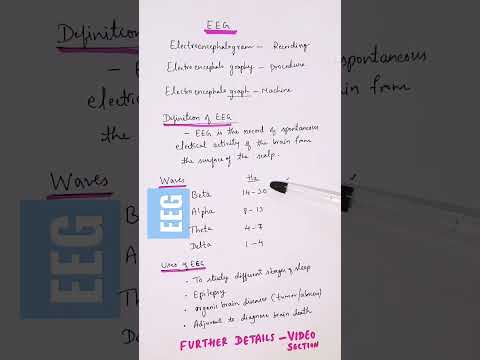 EEG
Electroencephalogram - Recording
Electroencephalography - Procedure
Electroencephalograph - Machine
Definition of EEG
- EEG is the record of spontaneous
electical activity of the brain from
the surface of the scalp.
Waves Hz
Beta 14-30
Alpha 8-13
Theta 4-7
Delta 1-4
EEG
Uses of EEG
• To study different stages of sleep
• Epilepsy
• organic brain diseases (tumor/abscess)
• Adjunct to diagnose brain death
FURTHER DETAILS - VIDEO
SECTION